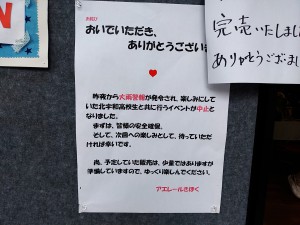 おいでいただき、
ありがとうございま
昨夜から大雨警報が発令され、楽しみにして
いた北宇和高校生と共に行うイベントが中止と
なりました。
まずは、皆様の安全確保。
そして、次回への楽しみとして、待っていただ
ければ幸いです。
尚、予定していた販売は、少量ではありますが
準備していますので、ゆっくり楽しんでください。
アエレールきほく
完売いたしまし
ありがとうございまし
N